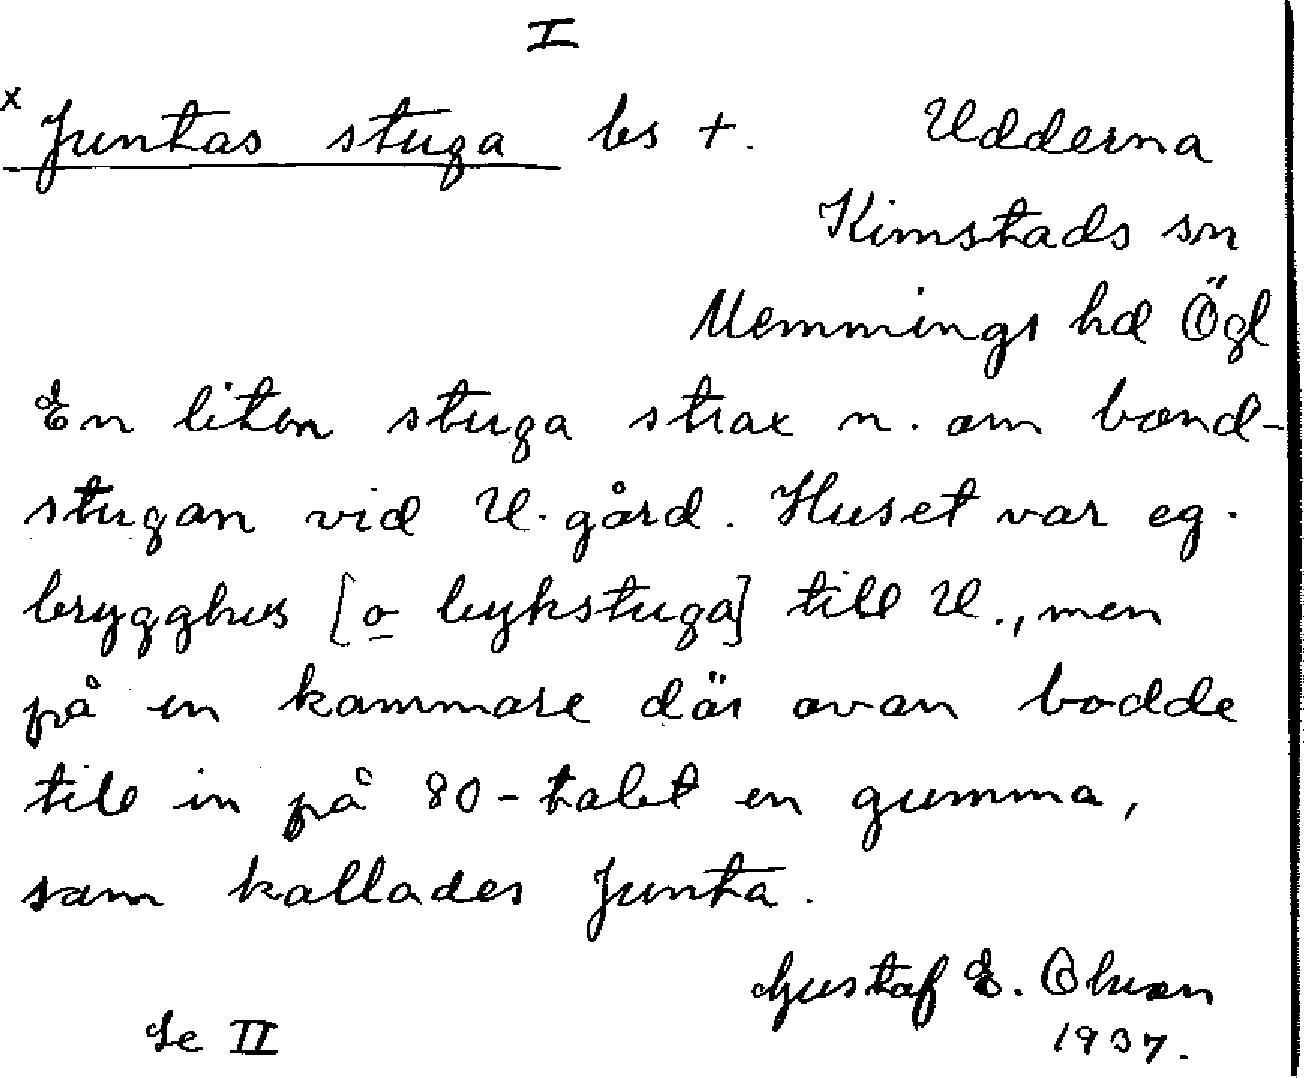 I
x Juntas stuga bs +. Udderna
Kimstads sn
Memmings hd Ögl
En liten stuga strax n. om bond-
stugan vid U. gård. Huset var eg.
brygghus [o bykstuga] till U., men
på en kammare där ovan bodde
till in på 80-talet en gumma,
som kallades Junta.
Gustaf E. Olsson
1937.
Se II